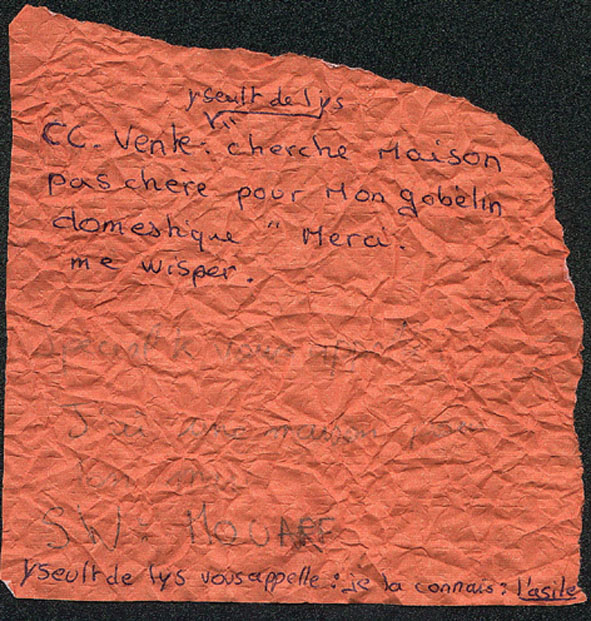 yseult de lys
CC. Vente : cherche Maison
pas chère pour Mon gobèlin
domestique " Merci.
me wisper.
vous
J'ai une maison pour
ton
SW : MOUAFF
yseult de lys vous appelle : je la connais : l'asile